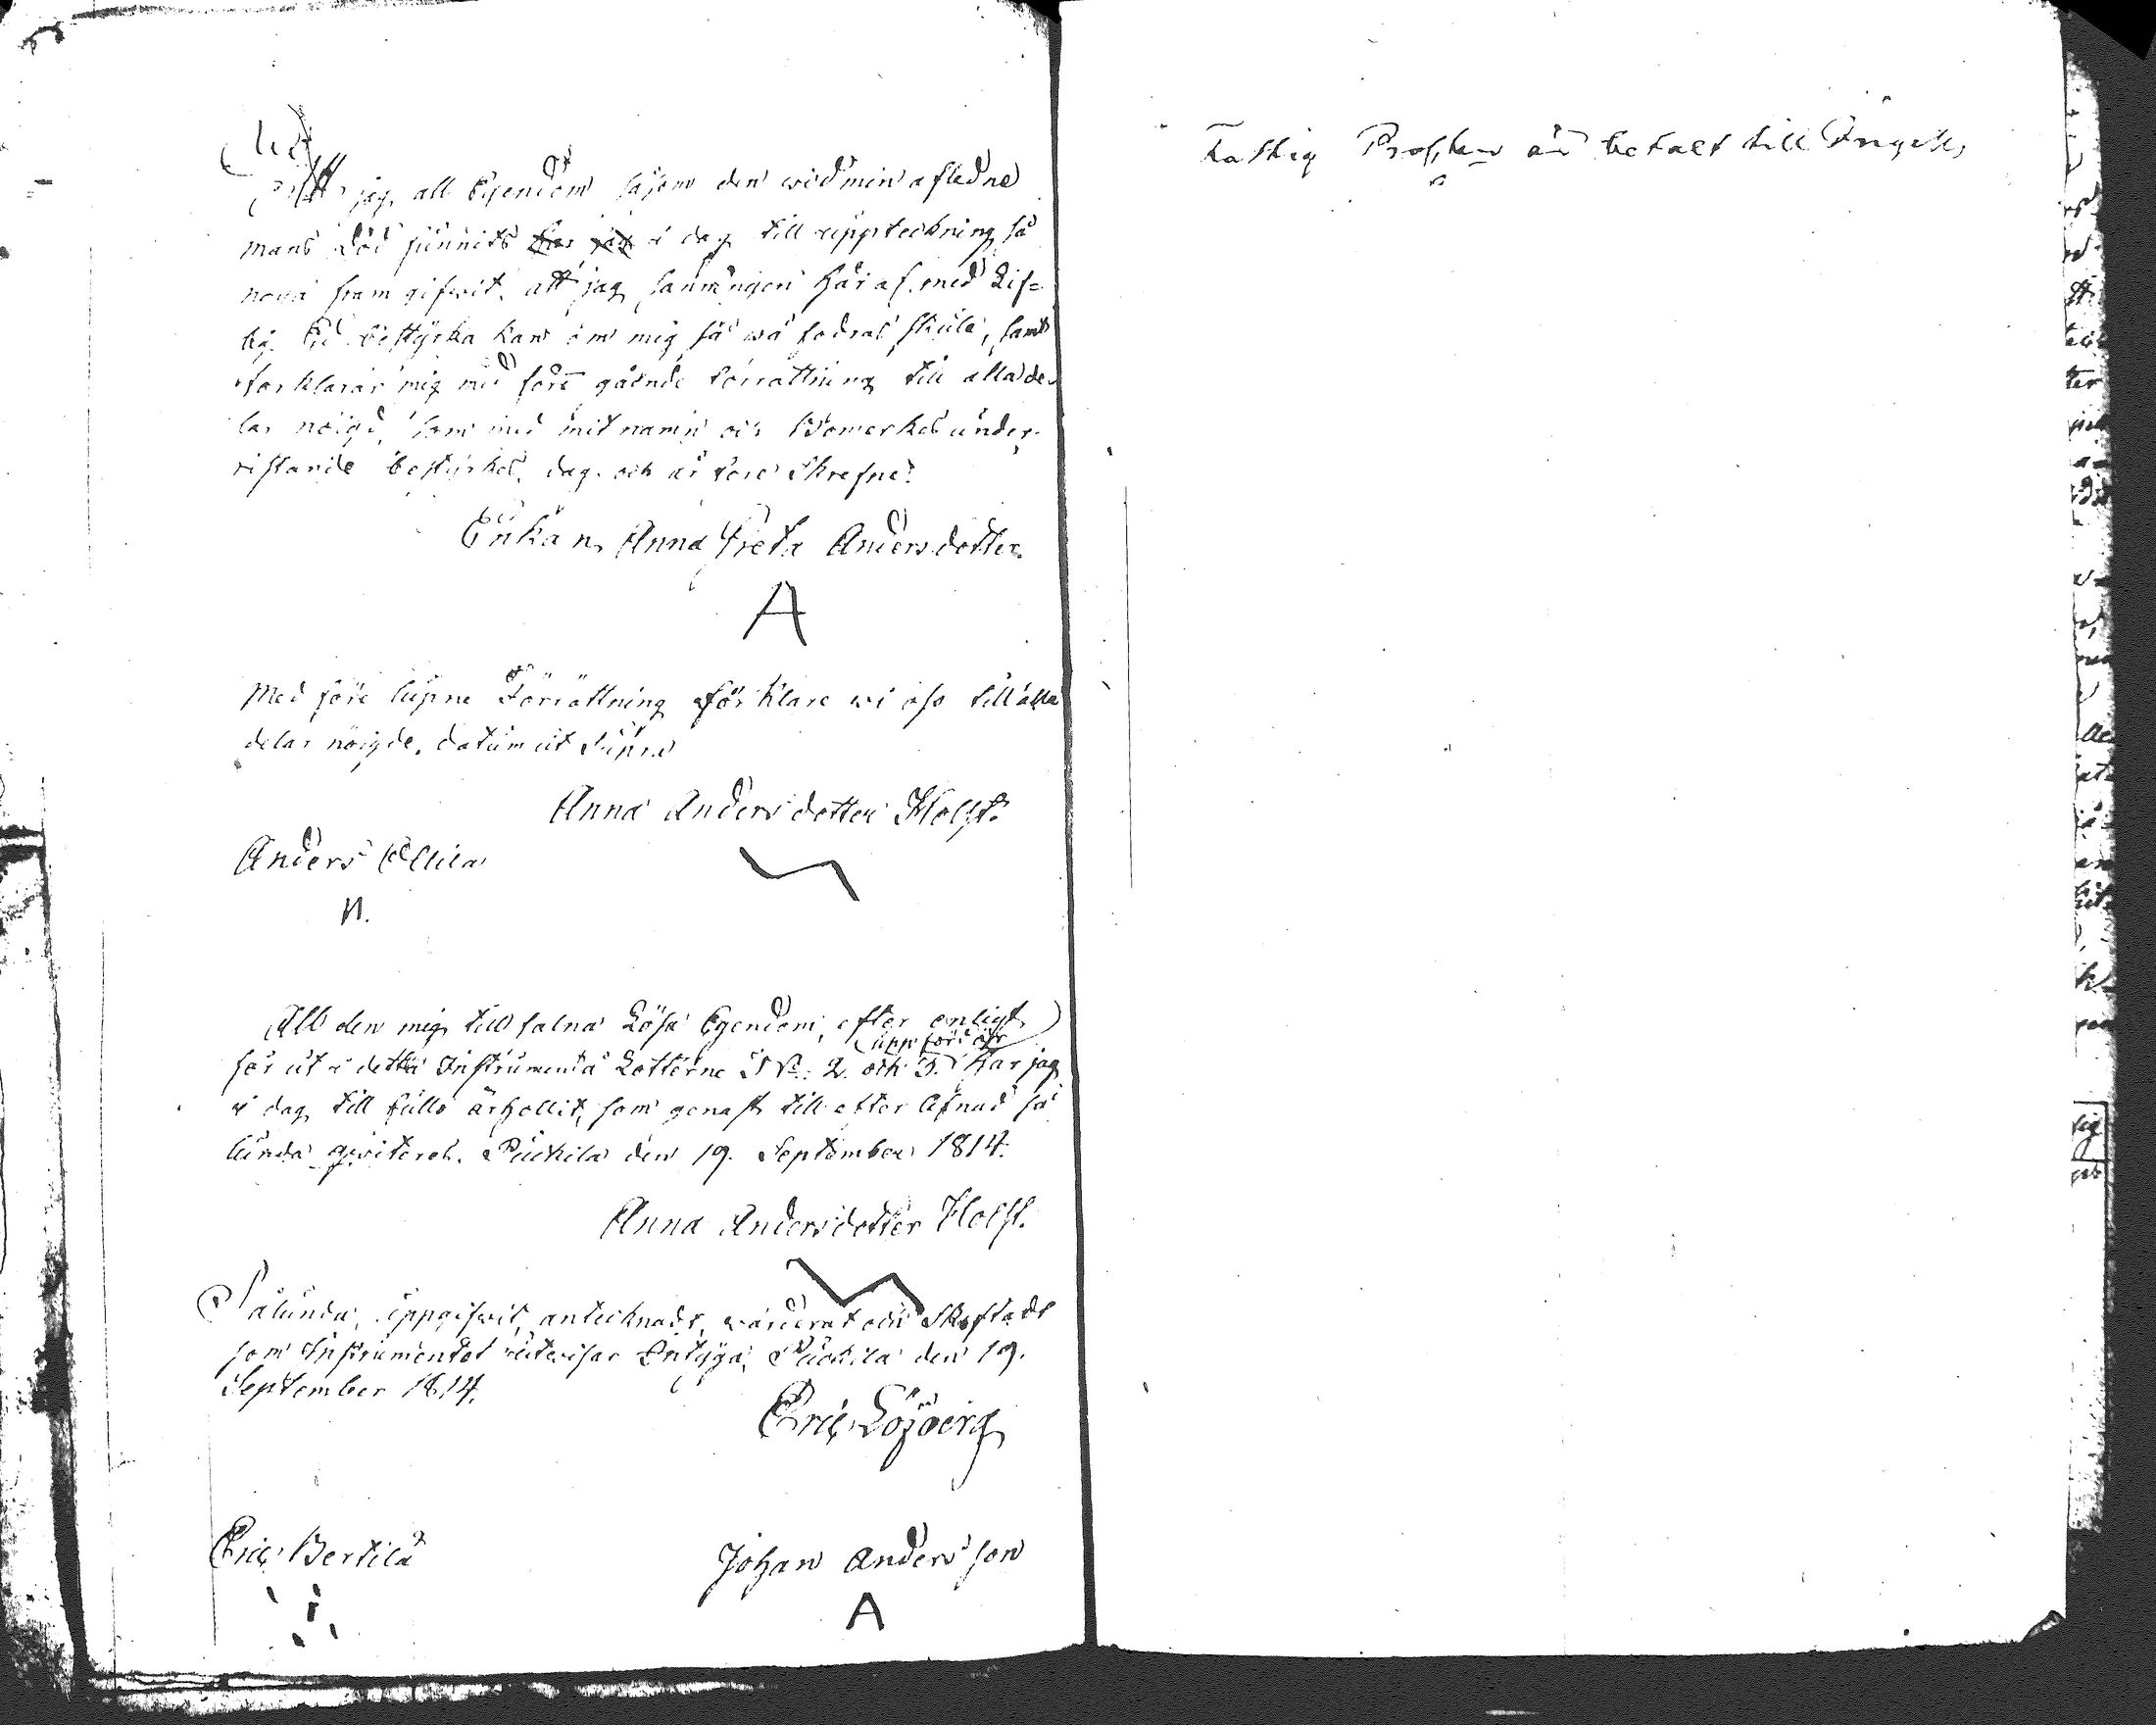 Att jag, all Egendom såsom den wid min aflednе
mans Död funnits har jag i dag till uppteckning så
noga fram gifwit, att jag sanningen här af med Lif=
lig Ed bestyrka kan om mig så wa fodras skule, samt
förklarar mig med före gående Förrättning till alla de
lar nöigd, som med mit namn och Bomerkes under
ristande bestyrkes, dag och år före Skrefne.
Enkan Anna Greta Andersdotter
A
Med före lupne Förrättning förklare wi oss till alla
delar nöigde, datum ut Supra
Anna Anders dotter Holst.
Anders Ellila
N.
All den mig till falna Lösa Egendom, efter enligt
upp förde
för ut i detta Instrument å Lotterne N: 2. och 3. har jag
i dag till fullo ärhollit, som genast till efter lefnad så
lunda qviteras. Puckila den 19. September 1814.
Anna Andersdotter Holst.
Sålunda, uppgifwit, antecknadt, wärderat och Skiftadt
som Instrumentet utwisar Intyga, Puckila den 19.
September 1814.
Eric Löfberg
Eric Bertila
Johan Anders son
A
Fattig Prosenten är betalt till